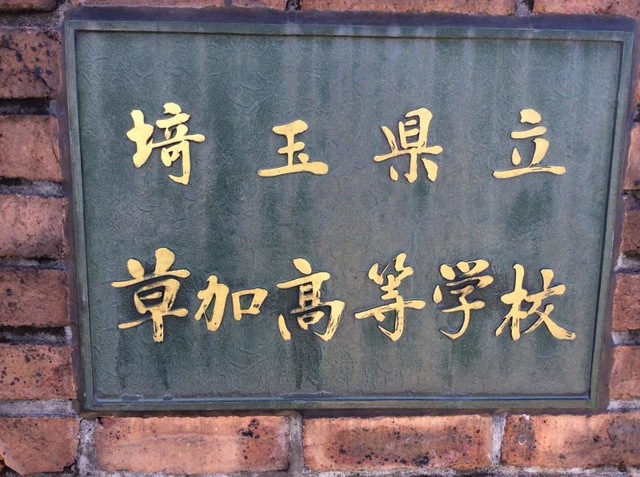 埼玉県立
草加高等学校